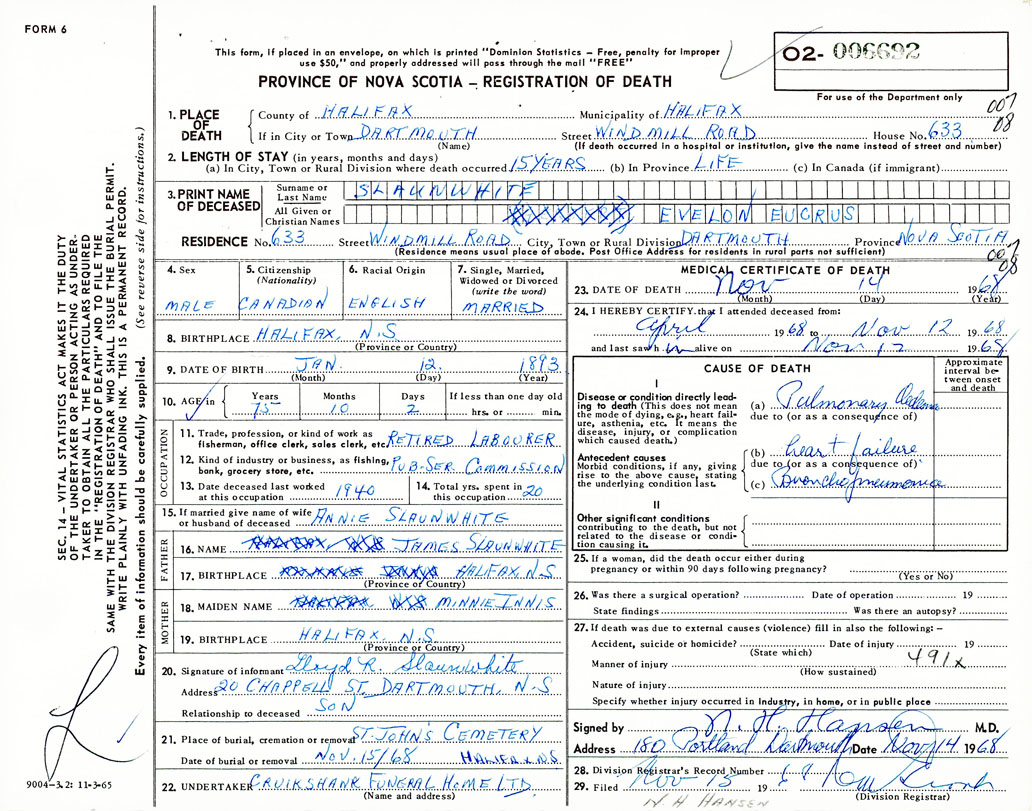 FORM 6
This form, if placed in an envelope, on which is printed "Dominion Statistics – Free, penalty for improper
use $50," and properly addressed will pass through the mail "FREE"
PROVINCE OF NOVA SCOTIA – REGISTRATION OF DEATH
O2- 006692
For use of the Department only
007
08
1. PLACE OF DEATH
County of HALIFAX Municipality of HALIFAX
If in City or Town DARTMOUTH Street WINDMILL ROAD House No. 633
(Name) (If death occurred in a hospital or institution, give the name instead of street and number)
2. LENGTH OF STAY (in years, months and days)
(a) In City, Town or Rural Division where death occurred 15 YEARS (b) In Province LIFE (c) In Canada (if immigrant)
3. PRINT NAME OF DECEASED
Surname or Last Name SLAUNWHITE
All Given or Christian Names EVELON EUCRUS
RESIDENCE No. 633 Street WINDMILL ROAD City, Town or Rural Division DARTMOUTH Province NOVA SCOTIA
(Residence means usual place of abode. Post Office Address for residents in rural parts not sufficient)
007
08
4. Sex MALE
5. Citizenship (Nationality) CANADIAN
6. Racial Origin ENGLISH
7. Single, Married, Widowed or Divorced (write the word) MARRIED
8. BIRTHPLACE HALIFAX, N.S.
(Province or Country)
9. DATE OF BIRTH JAN. 12. 1893
(Month) (Day) (Year)
10. AGE in Years 75 Months 10 Days 2 If less than one day old hrs. or min.
OCCUPATION
11. Trade, profession, or kind of work as fisherman, office clerk, sales clerk, etc. RETIRED LABOURER
12. Kind of industry or business, as fishing, bank, grocery store, etc. PUB-SER COMMISSION
13. Date deceased last worked at this occupation 1940
14. Total yrs. spent in this occupation 20
15. If married give name of wife or husband of deceased ANNIE SLAUNWHITE
FATHER
16. NAME JAMES SLAUNWHITE
17. BIRTHPLACE HALIFAX N.S
(Province or Country)
MOTHER
18. MAIDEN NAME MINNIE INNIS
19. BIRTHPLACE HALIFAX, N.S
(Province or Country)
20. Signature of informant Lloyd R. Slaunwhite
Address 20 CHAPPELL ST. DARTMOUTH, N.S
Relationship to deceased SON
21. Place of burial, cremation or removal ST JOHN'S CEMETERY
Date of burial or removal NOV. 15/68 HALIFAX N.S.
22. UNDERTAKER CRUIKSHANK FUNERAL HOME LTD.
(Name and address)
MEDICAL CERTIFICATE OF DEATH
23. DATE OF DEATH Nov 14 1968
(Month) (Day) (Year)
24. I HEREBY CERTIFY that I attended deceased from:
April 1968 to Nov 12 1968
and last saw him alive on Nov 12 1968
CAUSE OF DEATH
Approximate interval between onset and death
I
Disease or condition directly leading to death (This does not mean the mode of dying, e.g., heart failure, asthenia, etc. It means the disease, injury, or complication which caused death.)
(a) Pulmonary Oedema
due to (or as a consequence of)
Antecedent causes
Morbid conditions, if any, giving rise to the above cause, stating the underlying condition last.
(b) heart failure
due to (or as a consequence of)
(c) Bronchopneumonia
II
Other significant conditions contributing to the death, but not related to the disease or condition causing it.
25. If a woman, did the death occur either during
pregnancy or within 90 days following pregnancy?
(Yes or No)
26. Was there a surgical operation? Date of operation 19
State findings Was there an autopsy?
27. If death was due to external causes (violence) fill in also the following: –
Accident, suicide or homicide? Date of injury 19
(State which) 491x
Manner of injury
(How sustained)
Nature of injury
Specify whether injury occurred in Industry, in home, or in public place
Signed by N. H. Hansen M.D.
Address 180 Portland Dartmouth Date Nov 14 1968
28. Division Registrar's Record Number
29. Filed Nov 15 19 68
(Division Registrar)
N H HANSEN
SEC. 14 – VITAL STATISTICS ACT MAKES IT THE DUTY
OF THE UNDERTAKER OR PERSON ACTING AS UNDER-
TAKER TO OBTAIN ALL THE PARTICULARS REQUIRED
IN THE "REGISTRATION OF DEATH" AND TO FILE THE
SAME WITH THE DIVISION REGISTRAR WHO SHALL ISSUE THE BURIAL PERMIT.
WRITE PLAINLY WITH UNFADING INK. THIS IS A PERMANENT RECORD.
Every item of information should be carefully supplied. (See reverse side for instructions.)
9004–3.2: 11-3-65